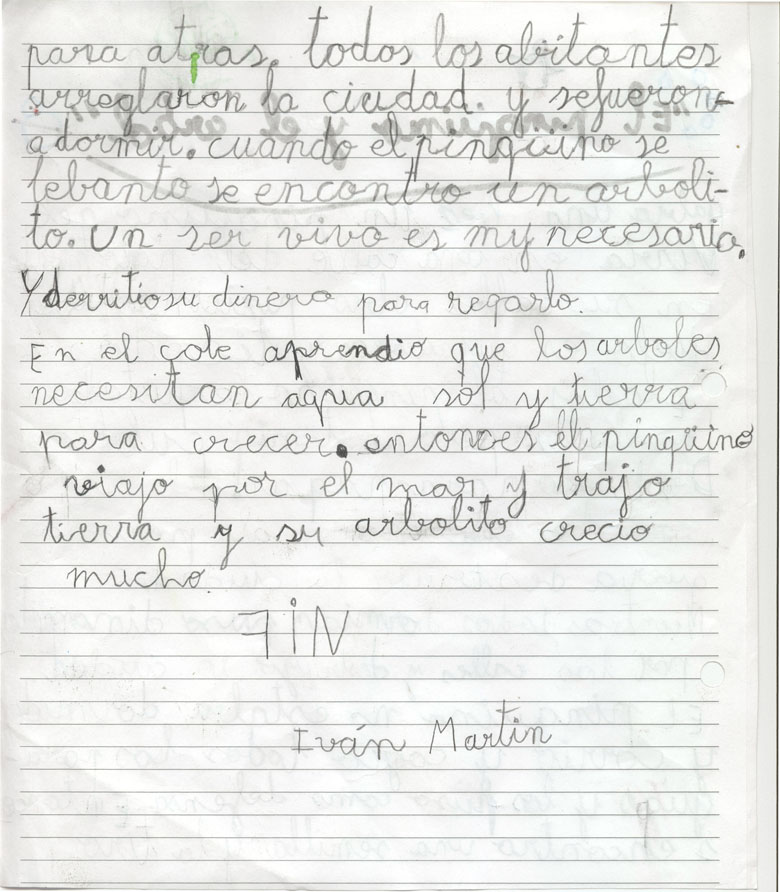 para atras. todos los abitantes
arreglaron la ciudad. y sefueron
a dormir. cuando el pingüino se
lebanto se encontro un arboli-
to. Un ser vivo es my necesario.
Y derritio su dinero para regarlo.
En el cole aprendio que los arboles
necesitan agua sol y tierra
para crecer. entonces el pingüino
viajo por el mar y trajo
tierra y su arbolito crecio
mucho.
FiN
Iván Martin